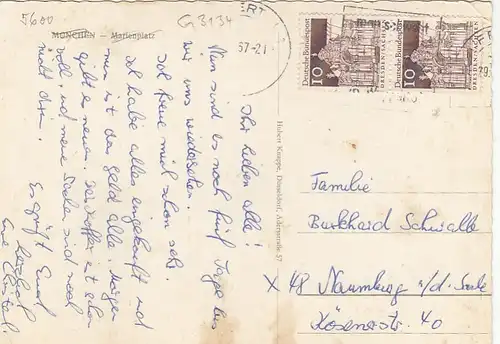 5600
G 3134
MÜNCHEN – Marienplatz
67-21
Deutsche Bundespost
10
DRESDEN/SACHSEN
Deutsche Bundespost
10
DRESDEN/SACHSEN
Ihr lieben alle!
Nun sind es noch fünf Tage bis
wir uns wiedersehen.
Ich freue mich schon sehr.
Ich habe alles eingekauft und
nun ist das Geld alle. Morgen
gibt es neues. Koffer ist schon
voll, und meine Sachen sind noch
nicht drin.
Es grüßt Euch
herzlich
Eure
Hubert Knuppe, Düsseldorf, Adlerstraße 57
Familie
Burkhard Schwalbe
X 48 Naumburg a/d. Saale
Kösenerstr. 40